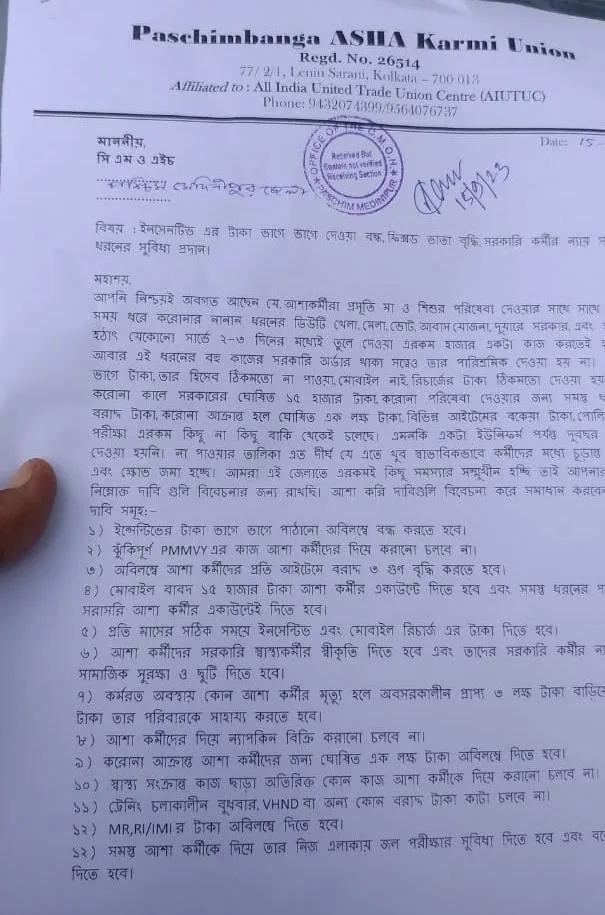 Paschimbanga ASHA Karmi Union
Regd. No. 26514
77/ 2/1, Lenin Sarani, Kolkata – 700 013
Affiliated to : All India United Trade Union Centre (AIUTUC)
Phone: 9432074399/9564076737
Date: 15-
মাননীয়,
সি এম ও এইচ
পশ্চিম মেদিনীপুর জেলা
OFFICE OF THE C.M.O.H.
Received But
Contain not verified
Receiving Section
PASCHIM MEDINIPUR
15/9/23
বিষয় : ইনসেনটিভ এর টাকা ভাগে ভাগে দেওয়া বন্ধ, ফিক্সড ভাতা বৃদ্ধি, সরকারি কর্মীর ন্যায় স
ধরনের সুবিধা প্রদান।
মহাশয়,
আপনি নিশ্চয়ই অবগত আছেন যে, আশাকর্মীরা প্রসূতি মা ও শিশুর পরিষেবা দেওয়ার সাথে সাথে
সময় ধরে করোনার নানান ধরনের ডিউটি খেলা, মেলা, ভোট, আবাস যোজনা, দুয়ারে সরকার, এবং
হঠাৎ যেকোনো সার্ভে ২-৩ দিনের মধ্যেই তুলে দেওয়া এরকম হাজার একটা কাজ করতেই
আবার এই ধরনের বহু কাজের সরকারি অর্ডার থাকা সত্ত্বেও তার পারিশ্রমিক দেওয়া হয় না।
ভাগে টাকা, তার হিসেব ঠিকমতো না পাওয়া, মোবাইল নাই, রিচার্জের টাকা ঠিকমতো দেওয়া হয়
করোনা কালে সরকারের ঘোষিত ১৫ হাজার টাকা, করোনা পরিষেবা দেওয়ার জন্য সমস্ত
বরাদ্দ টাকা, করোনা আক্রান্ত হলে ঘোষিত এক লক্ষ টাকা, বিভিন্ন আইটেমের বকেয়া টাকা, পোলি
পরীক্ষা এরকম কিছু না কিছু বাকি থেকেই চলেছে। এমনকি একটা ইউনিফর্ম পর্যন্ত দুবছর
দেওয়া হয়নি। না পাওয়ার তালিকা এত দীর্ঘ যে এতে খুব স্বাভাবিকভাবে কর্মীদের মধ্যে চূড়ান্ত
এবং ক্ষোভ জমা হচ্ছে। আমরা এই জেলাতে এরকমই কিছু সমস্যার সম্মুখীন হচ্ছি তাই আপনার
নিম্নোক্ত দাবি গুলি বিবেচনার জন্য রাখছি। আশা করি দাবিগুলি বিবেচনা করে সমাধান করবেন
দাবি সমূহ:-
১) ইন্সেন্টিভের টাকা ভাগে ভাগে পাঠানো অবিলম্বে বন্ধ করতে হবে।
২) ঝুঁকিপূর্ণ PMMVY এর কাজ আশা কর্মীদের দিয়ে করানো চলবে না।
৩) অবিলম্বে আশা কর্মীদের প্রতি আইটেমে বরাদ্দ ৩ গুণ বৃদ্ধি করতে হবে।
৪) মোবাইল বাবদ ১৫ হাজার টাকা আশা কর্মীর একাউন্টে দিতে হবে এবং সমস্ত ধরনের প
সরাসরি আশা কর্মীর একাউন্টেই দিতে হবে।
৫) প্রতি মাসের সঠিক সময়ে ইনসেন্টিভ এবং মোবাইল রিচার্জ এর টাকা দিতে হবে।
৬) আশা কর্মীদের সরকারি স্বাস্থ্যকর্মীর স্বীকৃতি দিতে হবে এবং তাদের সরকারি কর্মীর ন্য
সামাজিক সুরক্ষা ও ছুটি দিতে হবে।
৭) কর্মরত অবস্থায় কোন আশা কর্মীর মৃত্যু হলে অবসরকালীন প্রাপ্য ৩ লক্ষ টাকা বাড়িয়ে
টাকা তার পরিবারকে সাহায্য করতে হবে।
৮) আশা কর্মীদের দিয়ে ন্যাপকিন বিক্রি করানো চলবে না।
৯) করোনা আক্রান্ত আশা কর্মীদের জন্য ঘোষিত এক লক্ষ টাকা অবিলম্বে দিতে হবে।
১০) স্বাস্থ্য সংক্রান্ত কাজ ছাড়া অতিরিক্ত কোন কাজ আশা কর্মীকে দিয়ে করানো চলবে না।
১১) ট্রেনিং চলাকালীন বুধবার, VHND বা অন্য কোন বরাদ্দ টাকা কাটা চলবে না।
১২) MR,RI/IMI র টাকা অবিলম্বে দিতে হবে।
১২) সমস্ত আশা কর্মীকে দিয়ে তার নিজ এলাকায় জল পরীক্ষার সুবিধা দিতে হবে এবং
দিতে হবে।